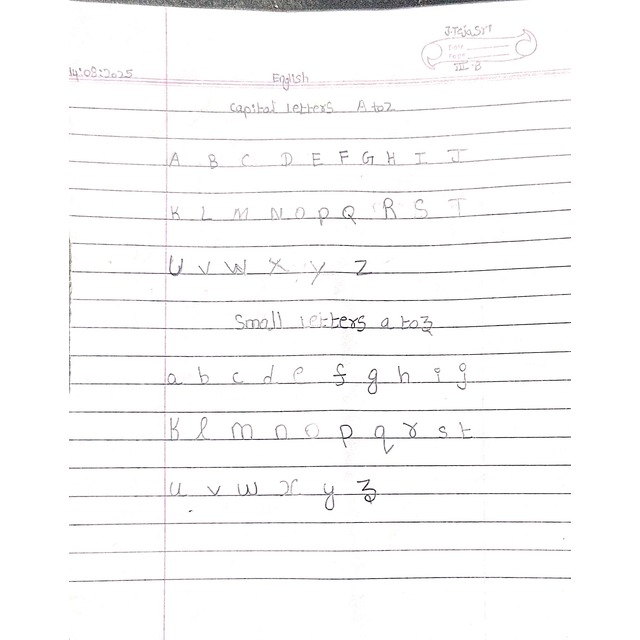 J.TejaSri
Date
Page
III-B
14:08:2025
English
Capital letters A to Z
A B C D E F G H I J
K L M N O P Q R S T
U V W X Y Z
Small letters a to z
a b c d e f g h i j
k l m n o p q r s t
u v w x y z